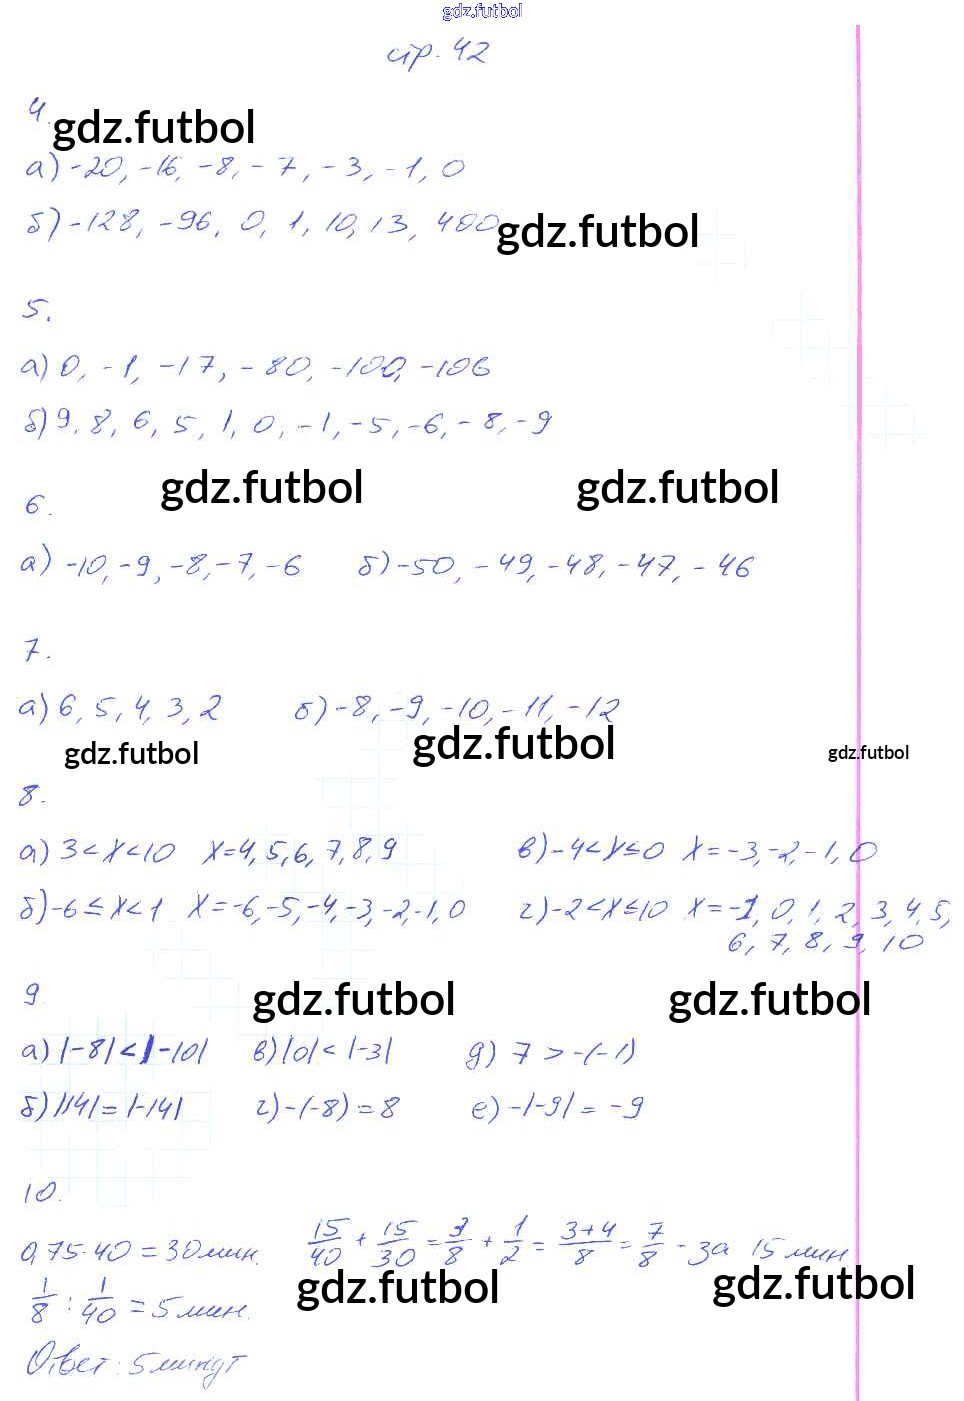 gdz.futbol
стр. 42
4.
gdz.futbol
а) -20, -16, -8, -7, -3, -1, 0
б) -128, -96, 0, 1, 10, 13, 400
gdz.futbol
5.
а) 0, -1, -17, -80, -100, -106
б) 9, 8, 6, 5, 1, 0, -1, -5, -6, -8, -9
gdz.futbol gdz.futbol
6.
а) -10, -9, -8, -7, -6 б) -50, -49, -48, -47, -46
7.
а) 6, 5, 4, 3, 2 б) -8, -9, -10, -11, -12
gdz.futbol gdz.futbol gdz.futbol
8.
а) 3 < x < 10 x = 4, 5, 6, 7, 8, 9 в) -4 < x ≤ 0 x = -3, -2, -1, 0
б) -6 ≤ x < 1 x = -6, -5, -4, -3, -2, -1, 0 г) -2 < x ≤ 10 x = -1, 0, 1, 2, 3, 4, 5,
6, 7, 8, 9, 10
9.
gdz.futbol gdz.futbol
а) |-8| < |-10| в) |0| < |-3| д) 7 > -(-1)
б) |14| = |-14| г) -(-8) = 8 е) -|-9| = -9
10.
0,75·40 = 30 мин. 15/40 + 15/30 = 3/8 + 1/2 = 3+4/8 = 7/8 - за 15 мин
gdz.futbol gdz.futbol
1/8 : 1/40 = 5 мин.
Ответ: 5 минут